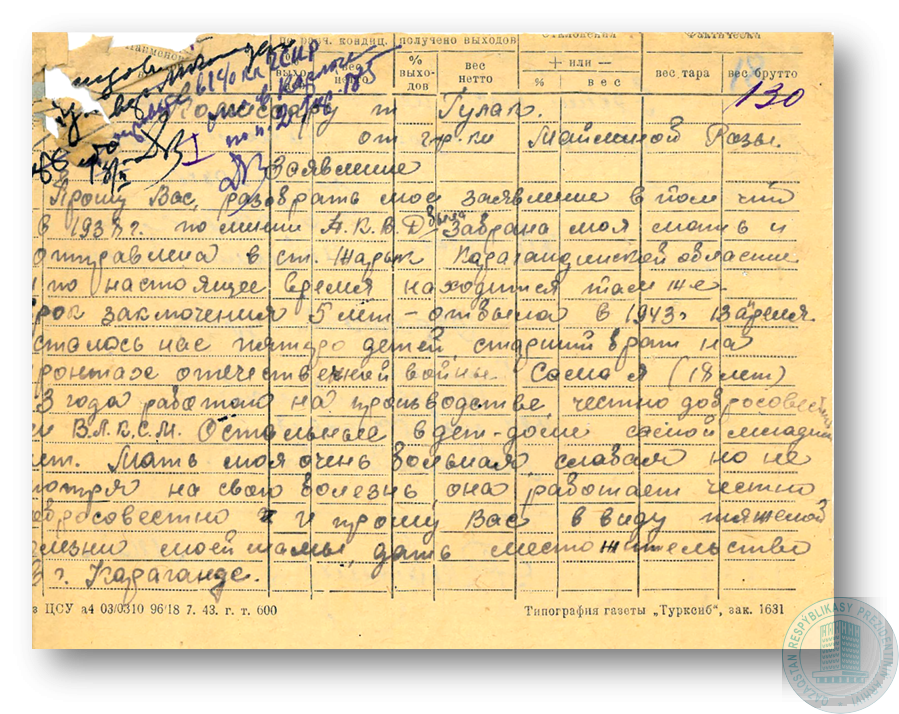 по разч. кондиц. получено выходов Отклонения Фактически
% выходов вес нетто + или — % вес вес тара вес брутто
130
Комиссару т Гулаг.
от гр.ки Маймной Розы.
Заявление
Прошу Вас, разобрать мое заявление в том что
в 1938 г. по линии Н.К.В.Д была Забрана моя мать и
отправлена в ст. Жарык Карагандинской области
по настоящее время находится там же.
рок заключения 5 лет – отбыла в 1943 г 13 апреля.
сталось нас пятеро детей, старший брат на
фронтах отечественной войны. Сама я (18 лет)
3 года работаю на производстве, честно добросовестно
В.Л.К.С.М. Остальные в дет-доме самой младшей
ет. Мать моя очень больная слабая но не
смотря на свою болезнь она работает честно
добросовестно и прошу Вас в виду тяжелой
олезни моей мамы, дать местожительство
в г. Караганде.
з ЦСУ а4 03/0310 96′18 7. 43. г. т. 600 Типография газеты „Турксиб“, зак. 1631
QAZAQSTAN RESPÝBLIKASY PREZIDENTINIŃ ARHIVI